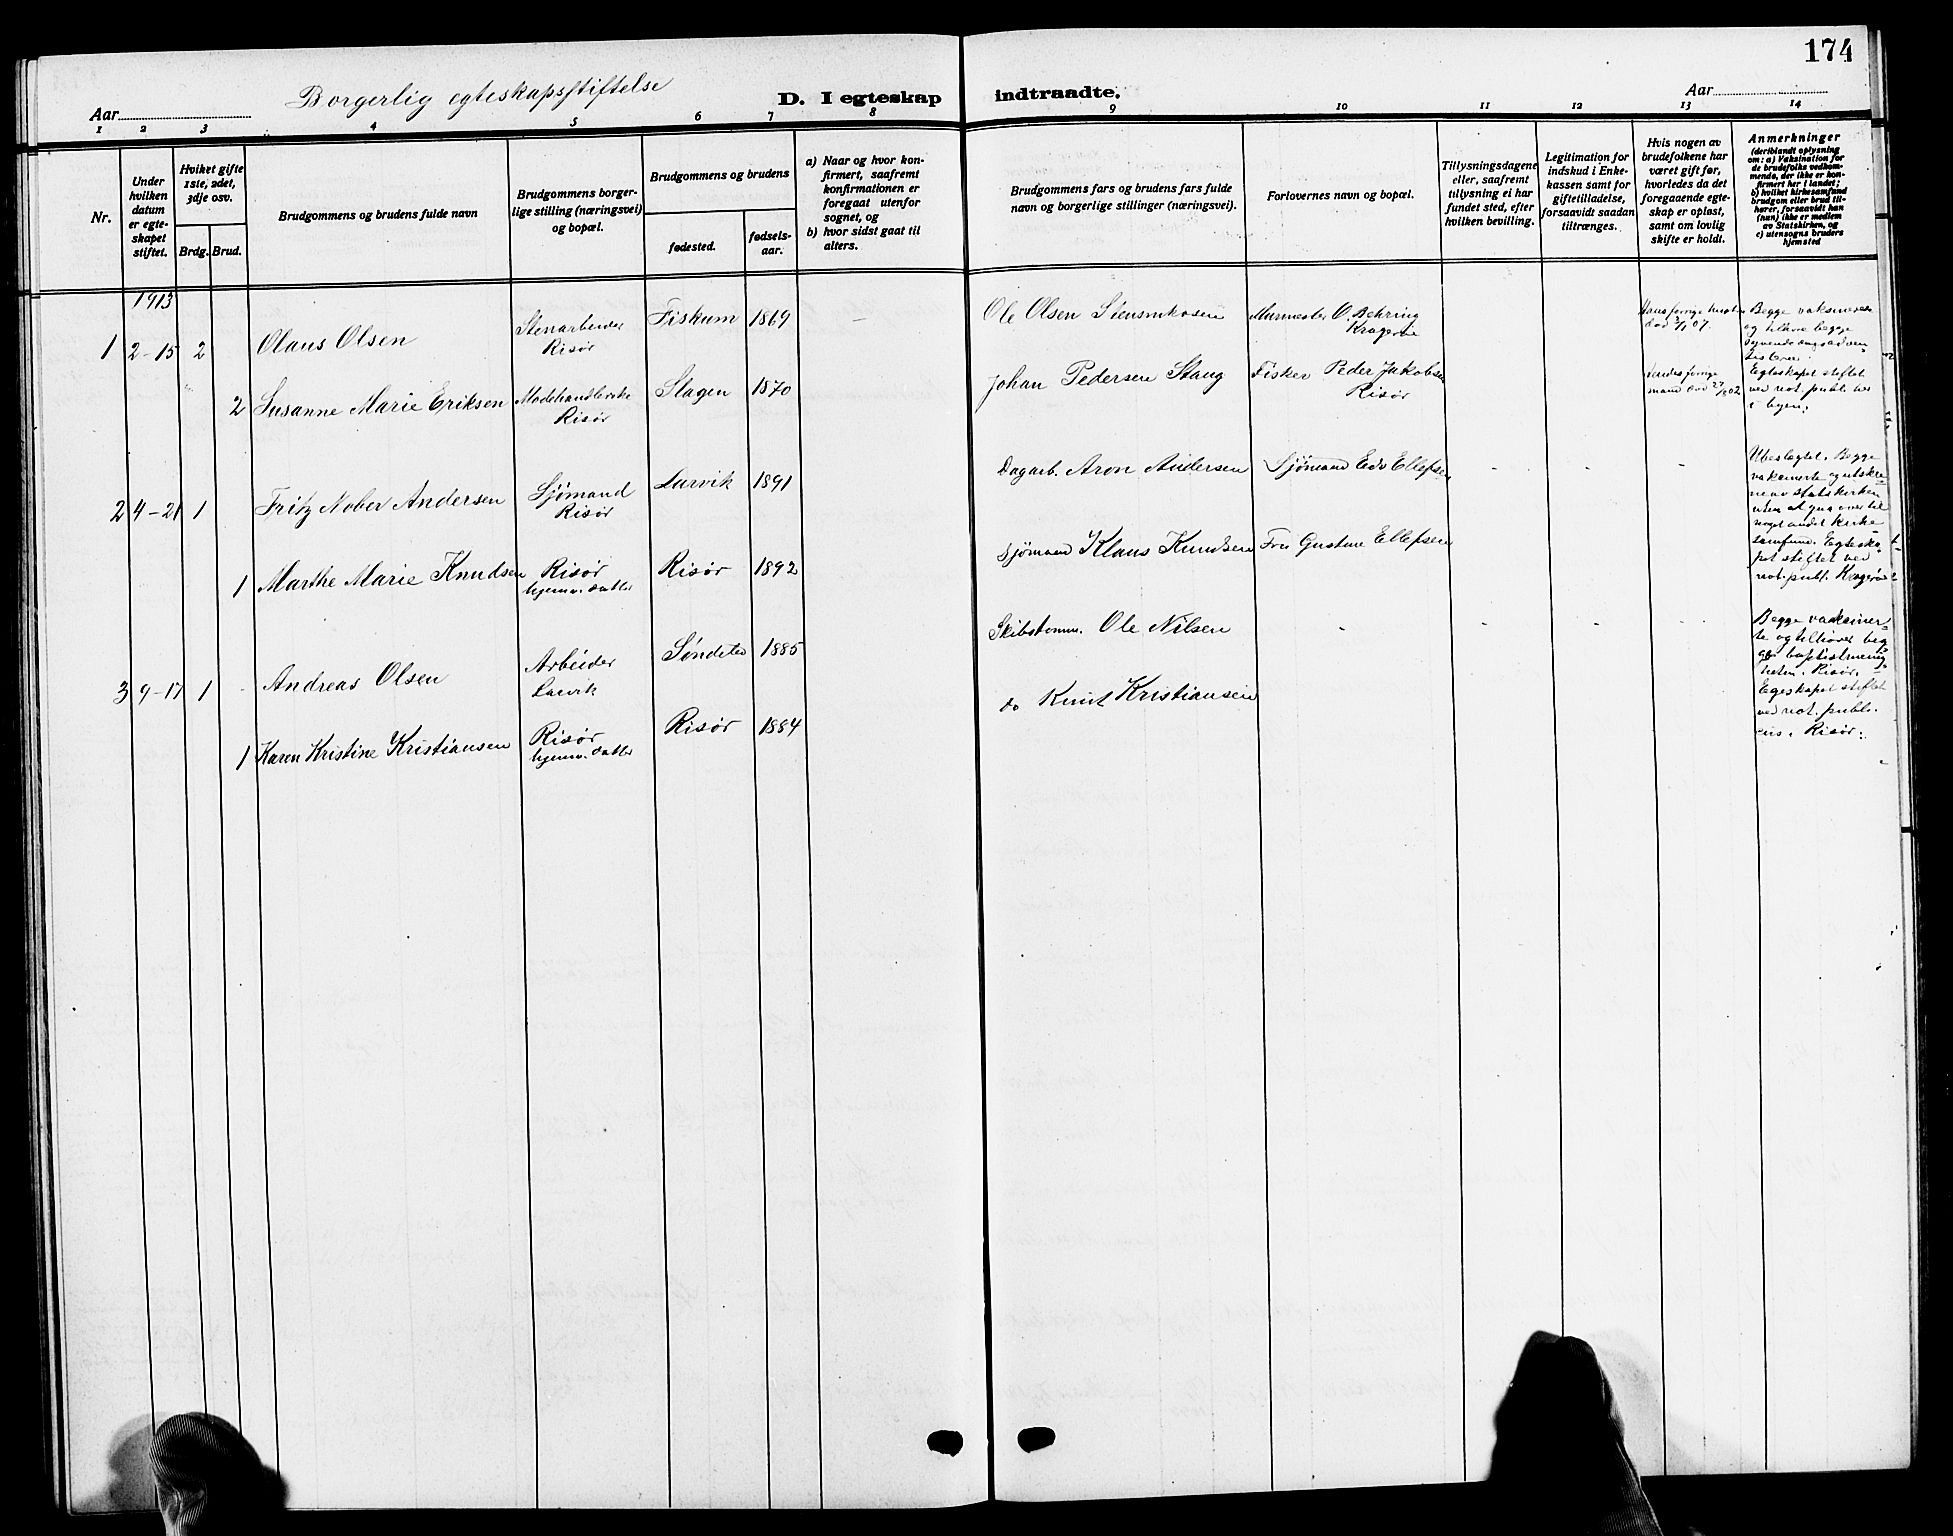 174
Borgerlig egteskapsstiftelse
Aar
D. I egteskap indtraadte.
Aar
1 2 3 4 5 6 7 8 9 10 11 12 13 14
Nr.
Under
hvilken
datum
er egte-
skapet
stiftet.
Hvilket gifte
1ste, 2det,
3dje osv.
Brdg. Brud.
Brudgommens og brudens fulde navn
Brudgommens borger-
lige stilling (næringsvei)
og bopæl.
Brudgommens og brudens
fødested.
fødsels-
aar.
a) Naar og hvor kon-
firmert, saafremt
konfirmationen er
foregaat utenfor
sognet, og
b) hvor sidst gaat til
alters.
Brudgommens fars og brudens fars fulde
navn og borgerlige stillinger (næringsvei).
Forlovernes navn og bopæl.
Tillysningsdagene
eller, saafremt
tillysning ei har
fundet sted, efter
hvilken bevilling.
Legitimation for
indskud i Enke-
kassen samt for
giftetilladelse,
forsaavidt saadan
tiltrænges.
Hvis nogen av
brudefolkene har
været gift før,
hvorledes da det
foregaaende egte-
skap er opløst,
samt om lovlig
skifte er holdt.
Anmerkninger
(deriblandt oplysning
om: a) Vaksination for
de brudefolks vedkom-
mende, der ikke er kon-
firmert her i landet;
b) hvilket kirkesamfund
brudgom eller brud til-
hører, forsaavidt han
(hun) ikke er medlem
av Statskirken, og
c) utensogns bruders
hjemsted
1913
1 2-15 2 Olaus Olsen
Stenarbeider
Risør
Fiskum 1869
Ole Olsen
Murmester O. Behring
Kragerø
død 07.
Begge vaksinerte
og tilhøre begge
2 Susanne Marie Eriksen
Modehandlerske
Risør
Slagen 1870
Johan Pedersen Stang
Fisker Peder Jakobsen
Risør
mand død 02
Egteskapet stiftet
ved not. publ. her
i byen.
2 4-21 1 Fritz Nober Andersen
Sjømand
Risør
Larvik 1891
Dagarb. Aron Andersen
Sjømand Edv Ellefsen
- - -
Ubeslegtet. Begge
vaksinerte og utskre-
ne av statskirken
uten at gaa over til
noget andet kirke
samfund. Egteska-
pet stiftet ved
not. publ. Kragerø
1 Marthe Marie Knudsen
Risør
hjemv. datter
Risør 1892
Sjømand Klaus Knudsen
Fru Gustine Ellefsen
3 9-17 1 - Andreas Olsen
Arbeider
Larvik
Søndeled 1885
Skibstømm. Ole Nilsen
- - - -
Begge vaksiner-
te og tilhører beg-
ge baptistmenig-
heten i Risør.
Egteskapet stiftet
ved not. publi-
cus i Risør.
1 Karen Kristine Kristiansen
Risør
hjemv. datter
Risør 1884
do Knut Kristiansen